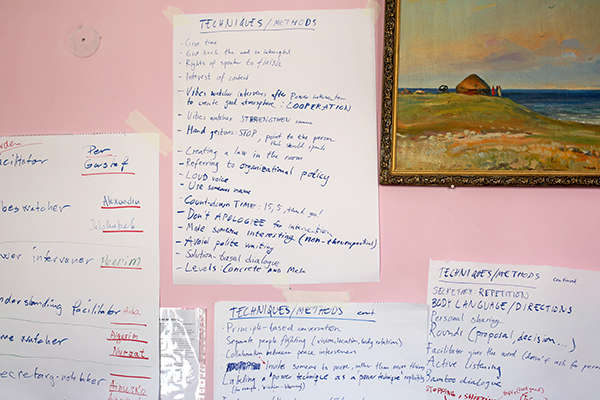 TECHNIQUES/METHODS
- Give time
- Give back the word
- Rights of speaker to finish
- Interest of content
- Vibes watcher intervenes after Power intervention
to create good atmosphere: COOPERATION
- Vibes watcher STRENGTHEN
- Hand gestures: STOP, point to the person
that should speak
- Creating a law in the room
- Referring to organizational policy
- LOUD voice
- Use someones name
- Countdown TIME: 15, 5, thank you!
- Don't APOLOGIZE for intervention
- Make someone interesting (non-chronopolical)
- Avoid polite waiting
- Solution-based dialogue
- Levels: Concrete and Meta
facilitator
Per
Gustaf
vibeswatcher
Alexandra
power intervener
Meerim
understanding facilitator
Aida
time watcher
secretary-notetaker
TECHNIQUES/METHODS cont
Principle-based conversation
Separate people fighting (vision, location, body relations)
Collaboration between peace interveners
Invite someone to move, rather than move them
Labeling a power technique as a power technique explicitly
TECHNIQUES/METHODS continued
SECRETARY: REPETITION
BODY LANGUAGE/DIRECTIONS
Personal sharing
Rounds (proposal, decision...)
Facilitator gives the word (doesn't ask for permi
Active listening
Bamboo dialogue
STOPPING,